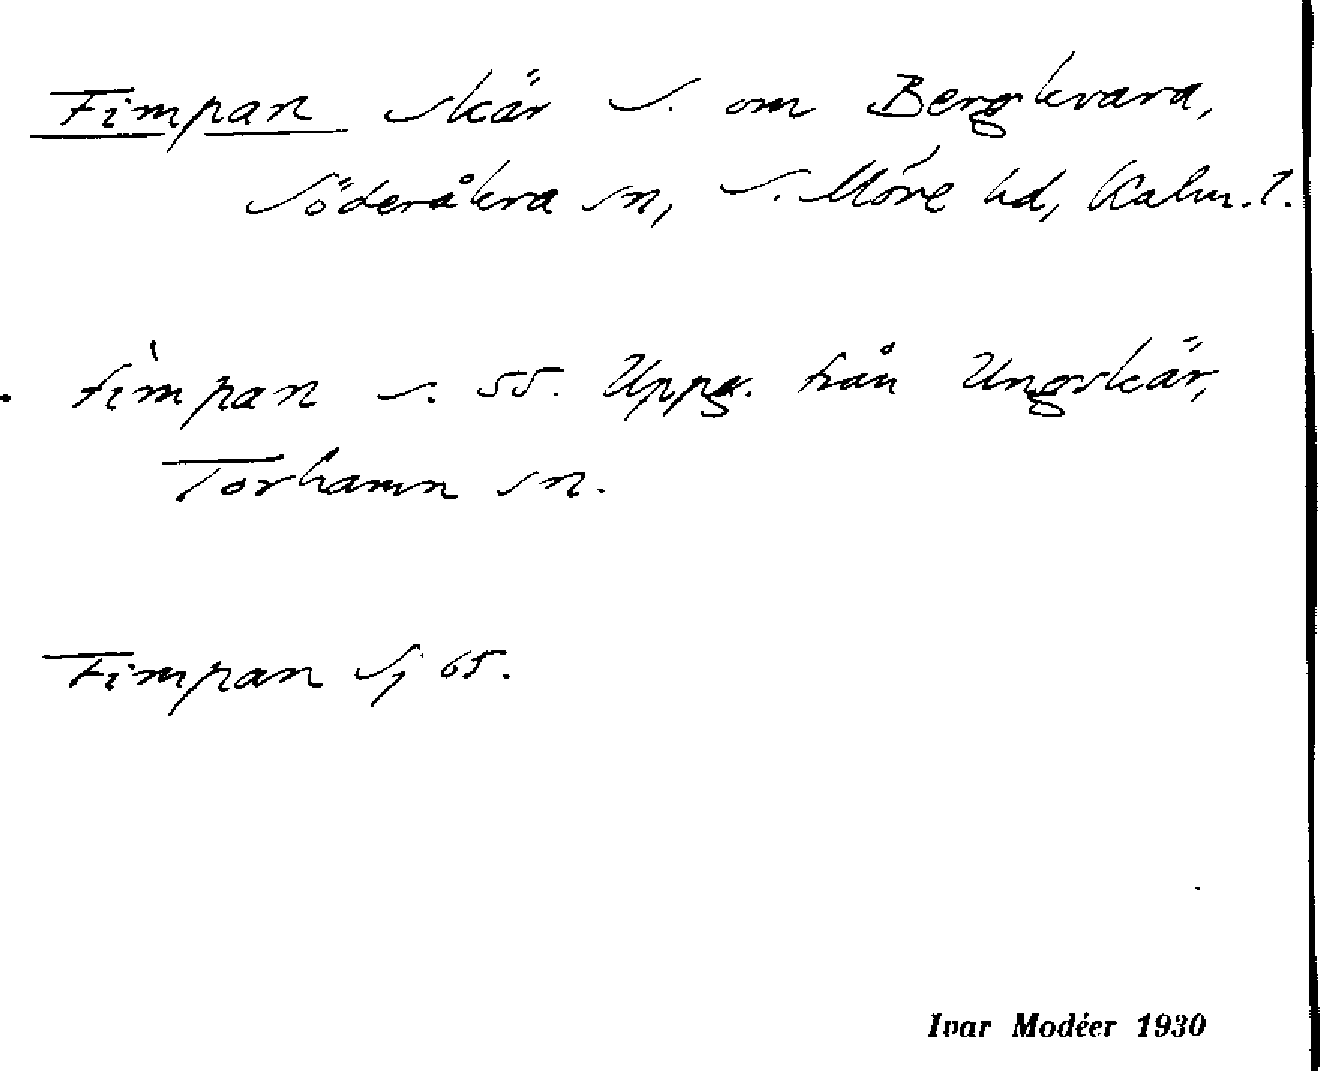 Fimpan skär S. om Bergkvara,
Söderåkra sn, S. Möre hd, Kalm. l.
fìmpan s. 55. Uppg. från Ungskär,
Torhamn sn.
Fimpan Sj 65.
Ivar Modéer 1930